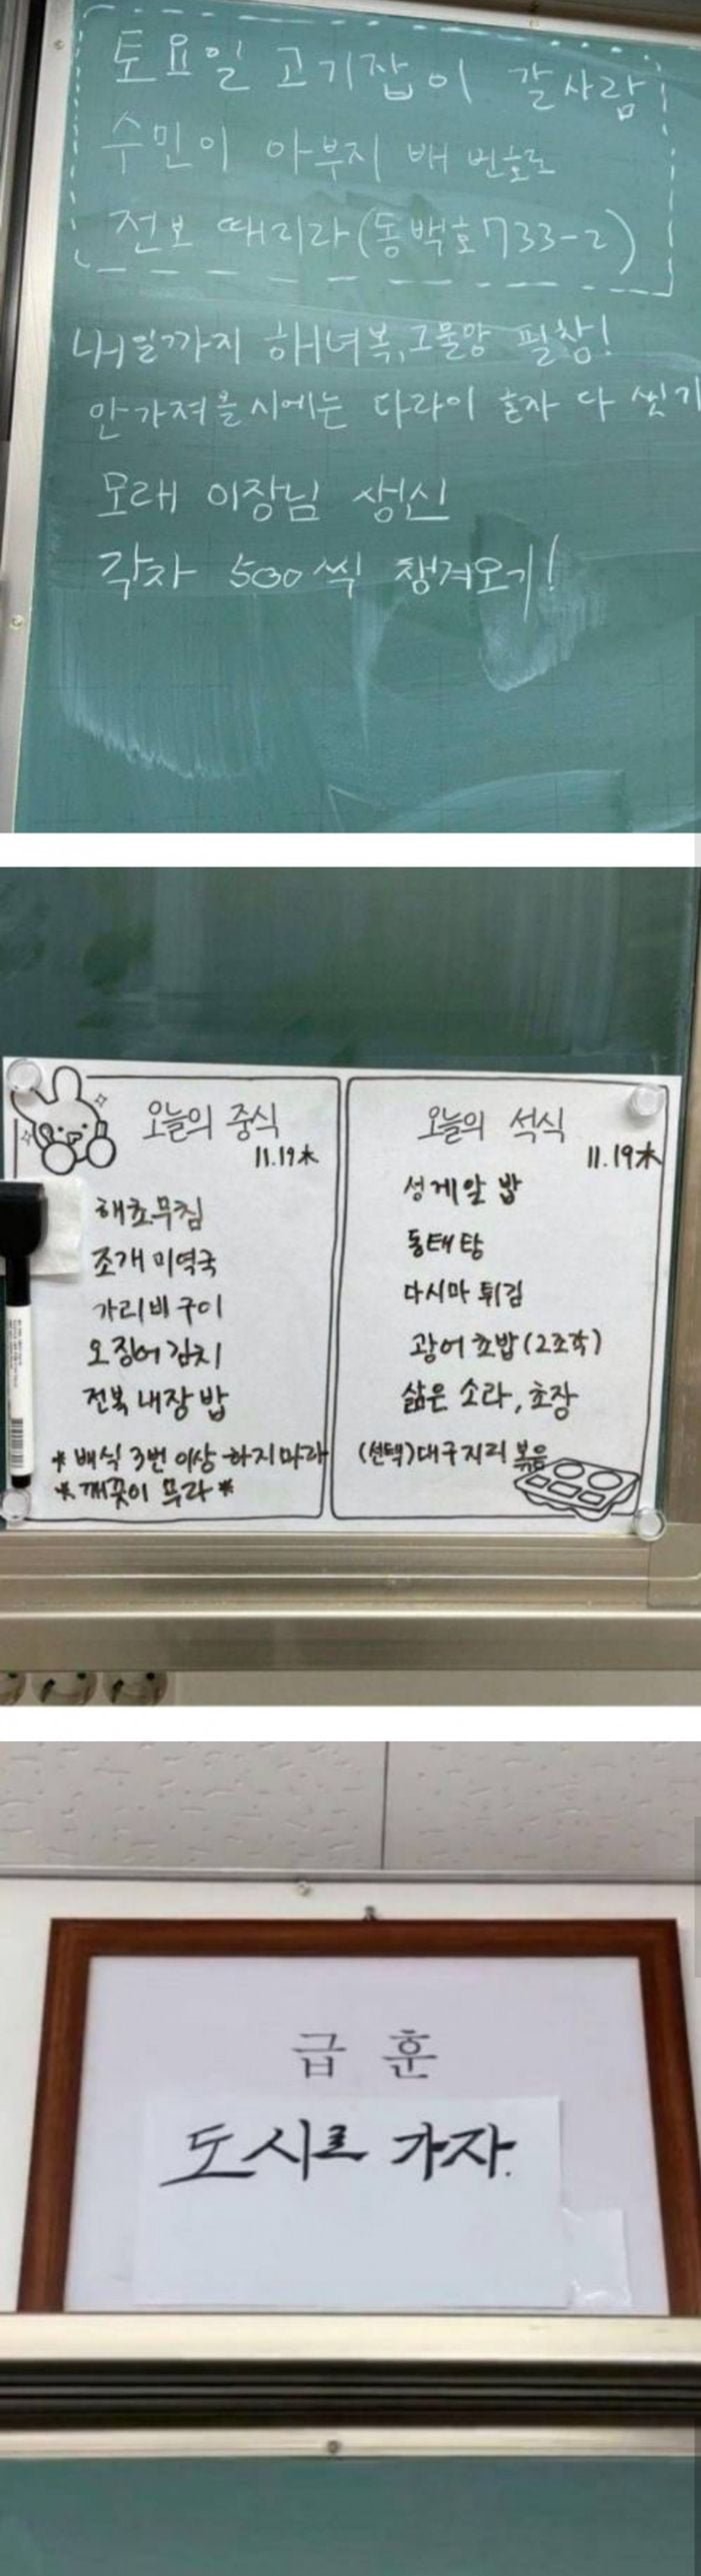 토요일 고기잡이 갈사람
수민이 아부지 배 번호로
전보 때리라(동백호733-2)
내일까지 해녀복,그물망 필참!
안가져올시에는 다라이 혼자 다 씻기
모레 이장님 생신
각자 500씩 챙겨오기!
오늘의 중식
11.19木
해초무침
조개미역국
가리비구이
오징어김치
전복내장밥
*배식 3번 이상 하지마라
*깨끗이 무라*
오늘의 석식
11.19木
성게알 밥
동태탕
다시마 튀김
광어초밥(2조각)
삶은 소라, 초장
(선택)대구지리 볶음
급 훈
도시로 가자.